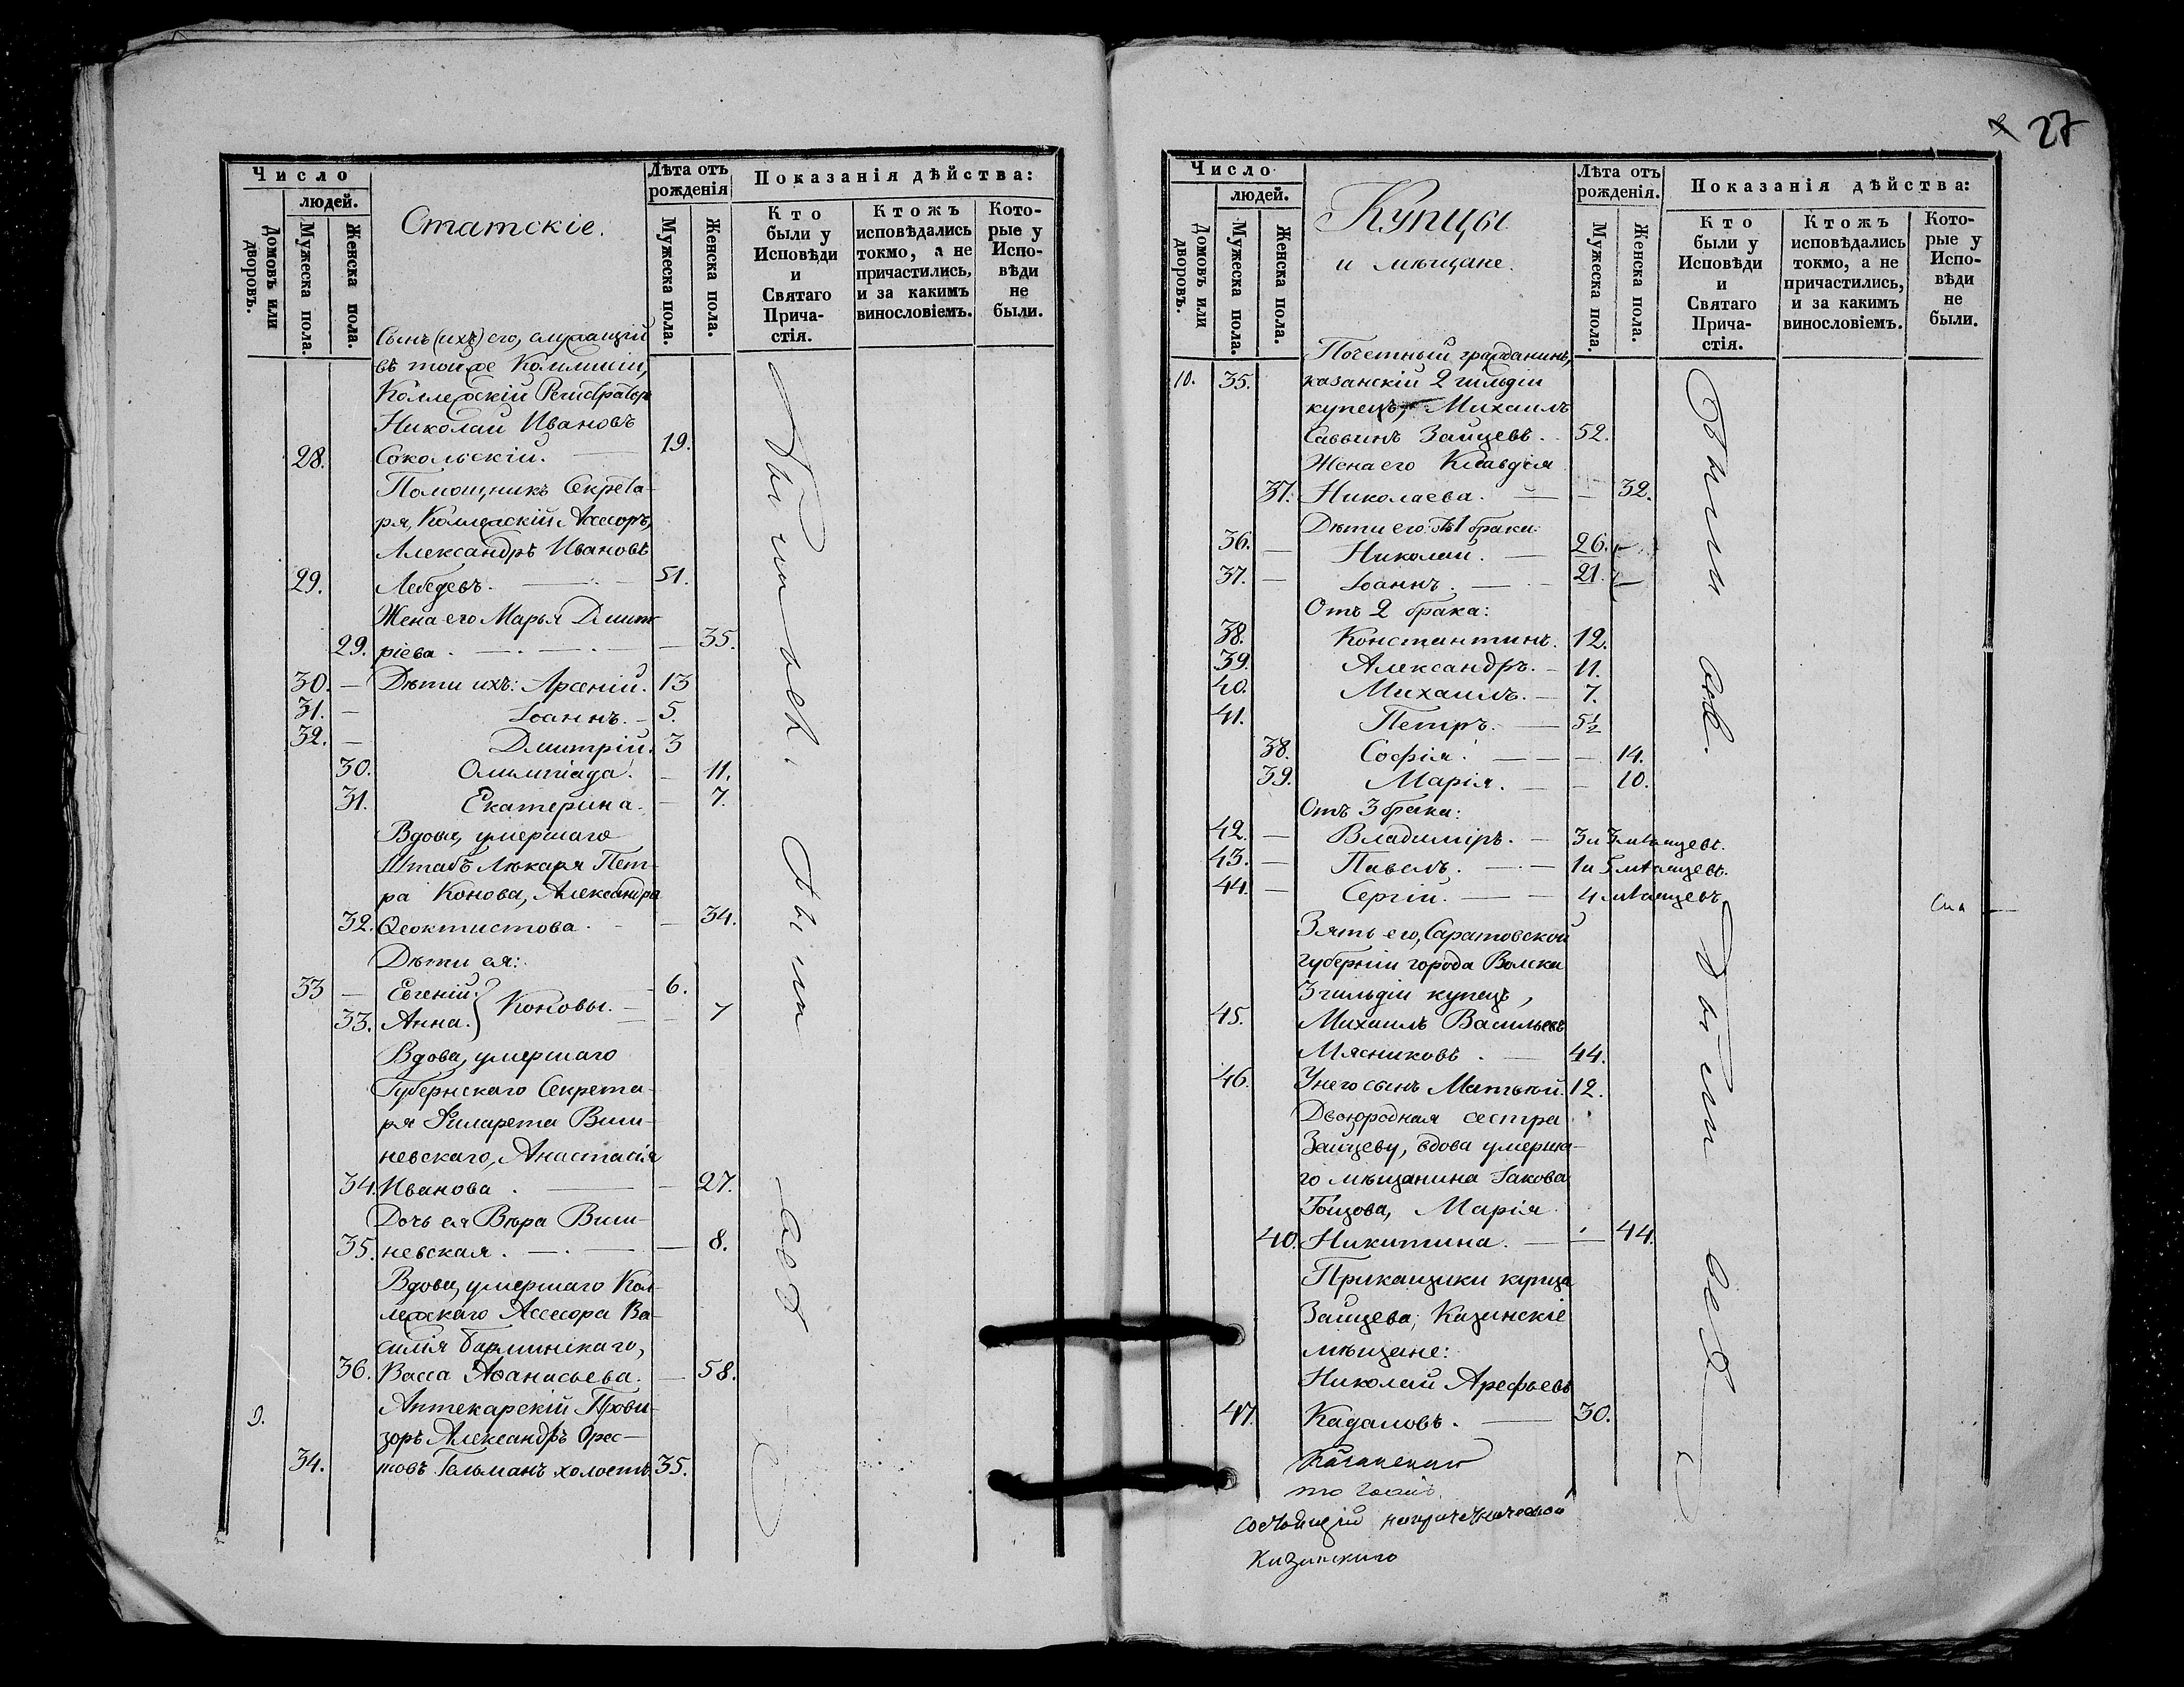 Число
людей.
Домовъ или дворовъ.
Мужеска пола.
Женска пола.
Статскіе.
Лѣта отъ рожденія
Мужеска пола.
Женска пола.
Показанія дѣйства:
Кто были у Исповѣди и Святаго Прича-стія.
Ктожъ исповѣдались токмо, а не причастились, и за какимъ винословіемъ.
Кото-рые у Испо-вѣди не были.
Сынъ (ихъ) его, служащій
въ той же Коммисіи,
Коллежскій Регистраторъ
Николай Ивановъ
28. Сокольскій. 19.
Помощникъ Секрета-
ря, Коллежскій Ассесоръ,
Александръ Ивановъ
29. Лебедевъ. 51.
Жена его Марья Дмит-
29. ріева. 35.
30. Дѣти ихъ: Арсеній. 13
31. Іоаннъ. 5.
32. Дмитрій. 3
30. Олимпіада. 11.
31. Екатерина. 7.
Вдова, умершаго
Штабъ Лѣкаря Пет-
ра Конова, Александра
32. Ѳеоктистова. 34.
Дѣти ея:
33 Евгеній. 6.
33. Анна. } Коновы. 7
Вдова, умершаго
Губернскаго Секрета-
ря Филарета Виш-
невскаго, Анастасія
34. Иванова. 27.
Дочь ея Вѣра Виш-
35. невская. 8.
Вдова, умершаго Кол-
лежскаго Ассесора Ва-
силія Барминскаго,
36. Васса Аѳанасьева. 58.
9. Аптекарскій Прови-
зоръ Александръ Орес-
34. товъ Гельманъ холостъ. 35.
27
Число
людей.
Домовъ или дворовъ.
Мужеска пола.
Женска пола.
Купцы
и мѣщане.
Лѣта отъ рожденія.
Мужеска пола.
Женска пола.
Показанія дѣйства:
Кто были у Исповѣди и Святаго Прича-стія.
Ктожъ исповѣдались токмо, а не причастились, и за какимъ винословіемъ.
Кото-рые у Испо-вѣди не были.
Почетный гражданинъ,
10. 35. казанскій 2 гильдіи
купецъ, Михаилъ
Саввинъ Зайцевъ. 52.
Жена его Клавдія
37. Николаева. 32.
Дѣти его: 1 брака:
36. Николай. 26.
37. Іоаннъ. 21.
Отъ 2 брака:
38. Константинъ. 12.
39. Александръ. 11.
40. Михаилъ. 7.
41. Петръ. 5½
38. Софія. 14.
39. Марія. 10.
Отъ 3 брака:
42. Владиміръ. 3 и 3 мѣсяцевъ.
43. Павелъ. 1 и 5 мѣсяцевъ.
44. Сергій. 4 мѣсяцевъ
Зять его, Саратовской
губерніи города Волска
3 гильдіи купецъ,
45. Михаилъ Васильевъ
Мясниковъ. 44.
46. У него сынъ Матѳей. 12.
Двоюродная сестра
Зайцеву, вдова умерша-
го мѣщанина Іакова
Гойцова, Марія
40. Никитина. 44.
Прикащики купца
Зайцева, Казанскіе
мѣщане:
Николай Арефьевъ
47. Кадаловъ. 30.